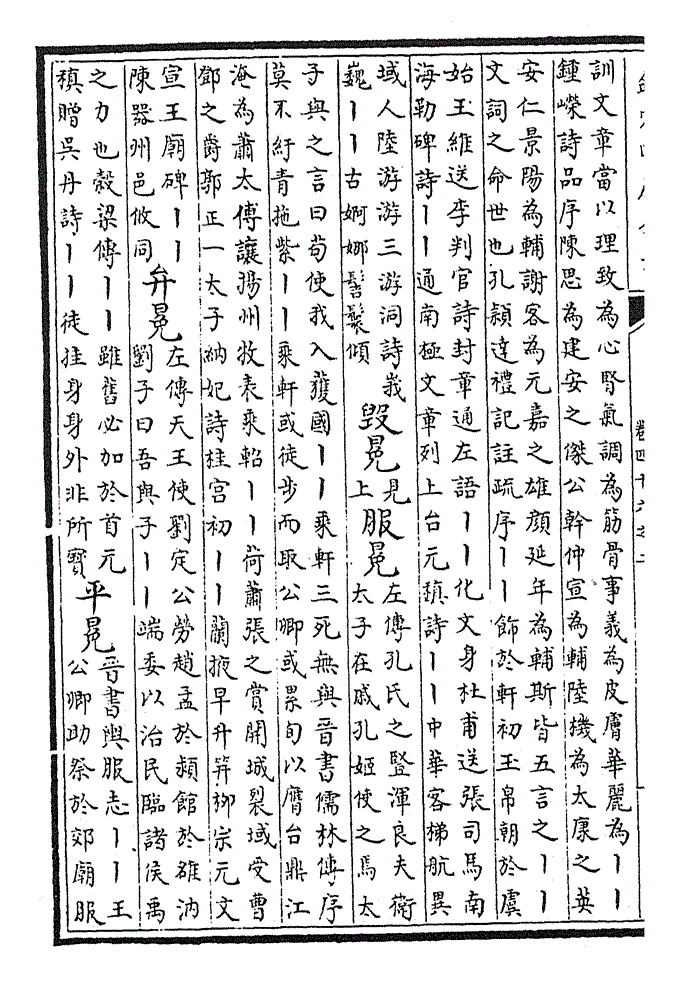 訓文章當以理致為心腎氣調為筋骨事義為皮膚華麗為丨丨
鍾嶸詩品序陳思為建安之傑公幹仲宣為輔陸機為太康之英
安仁景陽為輔謝客為元嘉之雄顔延年為輔斯皆五言之丨丨
文詞之命世也孔穎達禮記註疏序丨丨飾於軒初玉帛朝於虞
始王維送李判官詩封章通左語丨丨化文身杜甫送張司馬南
海勒碑詩丨丨通南極文章列上台元稹詩丨丨中華客梯航異
域人陸游游三游洞詩峩
巍丨丨古婀娜髻鬟傾
毁冕
見
上
服冕
左傳孔氏之豎渾良夫衛
太子在戚孔姬使之焉太
子與之言曰苟使我入獲國丨丨乘軒三死無與晉書儒林傳序
莫不紆青拖紫丨丨乘軒或徒步而取公卿或累旬以膺台鼎江
淹為蕭太傅讓揚州牧表乘軺丨丨荷蕭張之賞開城裂域受曹
鄧之爵郭正一太子納妃詩桂宫初丨丨蘭掖早升笄柳宗元文
宣王廟碑丨丨
陳器州邑攸同
弁冕
左傳天王使劉定公勞趙孟於潁館於雒汭
劉子曰吾與子丨丨端委以治民臨諸侯禹
之力也穀梁傳丨丨雖舊必加於首元
稹贈吳丹詩丨丨徒挂身身外非所寳
平冕
晉書輿服志丨丨王
公卿助祭於郊廟服